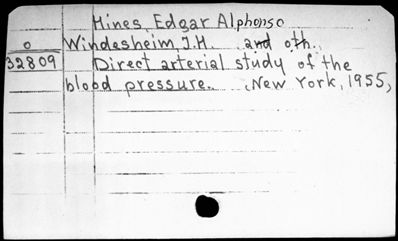 Hines, Edgar Alphonso
o Windesheim, J.H. and oth.
32809 Direct arterial study of the
blood pressure. New York, 1955,